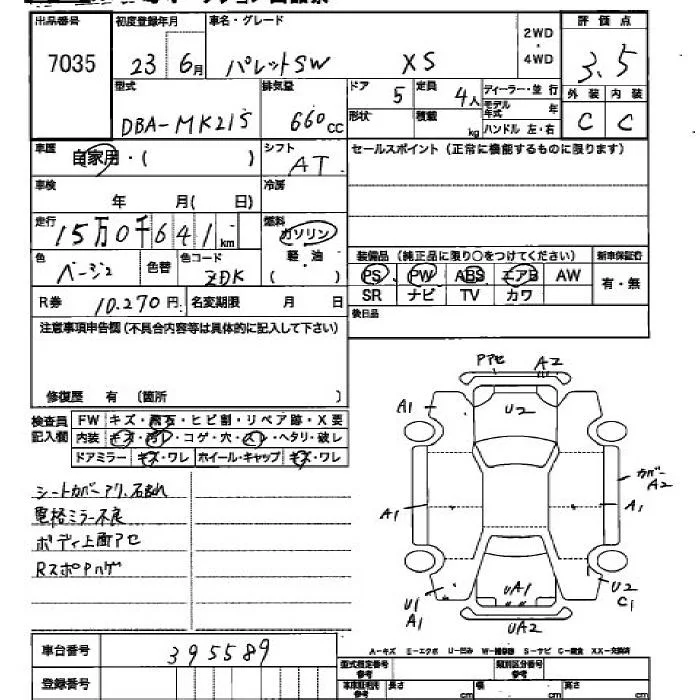 出品番号 初度登録年月 車名・グレード 2WD・4WD 評価点
7035 23 6月 パレットSW XS 3.5
型式 排気量 ドア 5 定員 4人 ディーラー・並行 外装 内装
DBA-MK21S 660cc 形状 積載 kg モデル年式 年 ハンドル 左・右 C C
車歴 自家用・( ) シフト AT セールスポイント(正常に機能するものに限ります)
車検 年 月( 日) 冷房
走行 15万0千641km 燃料 ガソリン 軽・油 ( )
色 ベージュ 色替 色コード ZDK 装備品(純正品に限り○をつけてください) 新車保証書
PS PW ABS エアB AW 有・無
R券 10.270円 名変期限 月 日 SR ナビ TV カワ
注意事項申告欄(不具合内容等は具体的に記入して下さい) 後日品
修復歴 有 (箇所 )
検査員記入欄 FW キズ・飛石・ヒビ割・リペア跡・X要
内装 キズ・汚レ・コゲ・穴・スレ・ヘタリ・破レ
ドアミラー キズ・ワレ ホイール・キャップ キズ・ワレ
シートカバーアリ、石跳れ
電格ミラー不良
ボディ上面アセ
RスポPハゲ
PアセA2
A1 U2
カバーA2
A1 A1
U1 A1 UA1 U2 C1
UA2
車台番号 395589
A-キズ E-エクボ U-凹み W-補修跡 S-サビ C-腐食 XX-交換済
登録番号 型式指定番号 参考 類別区分番号 参考
長さ cm 幅 cm 高さ cm